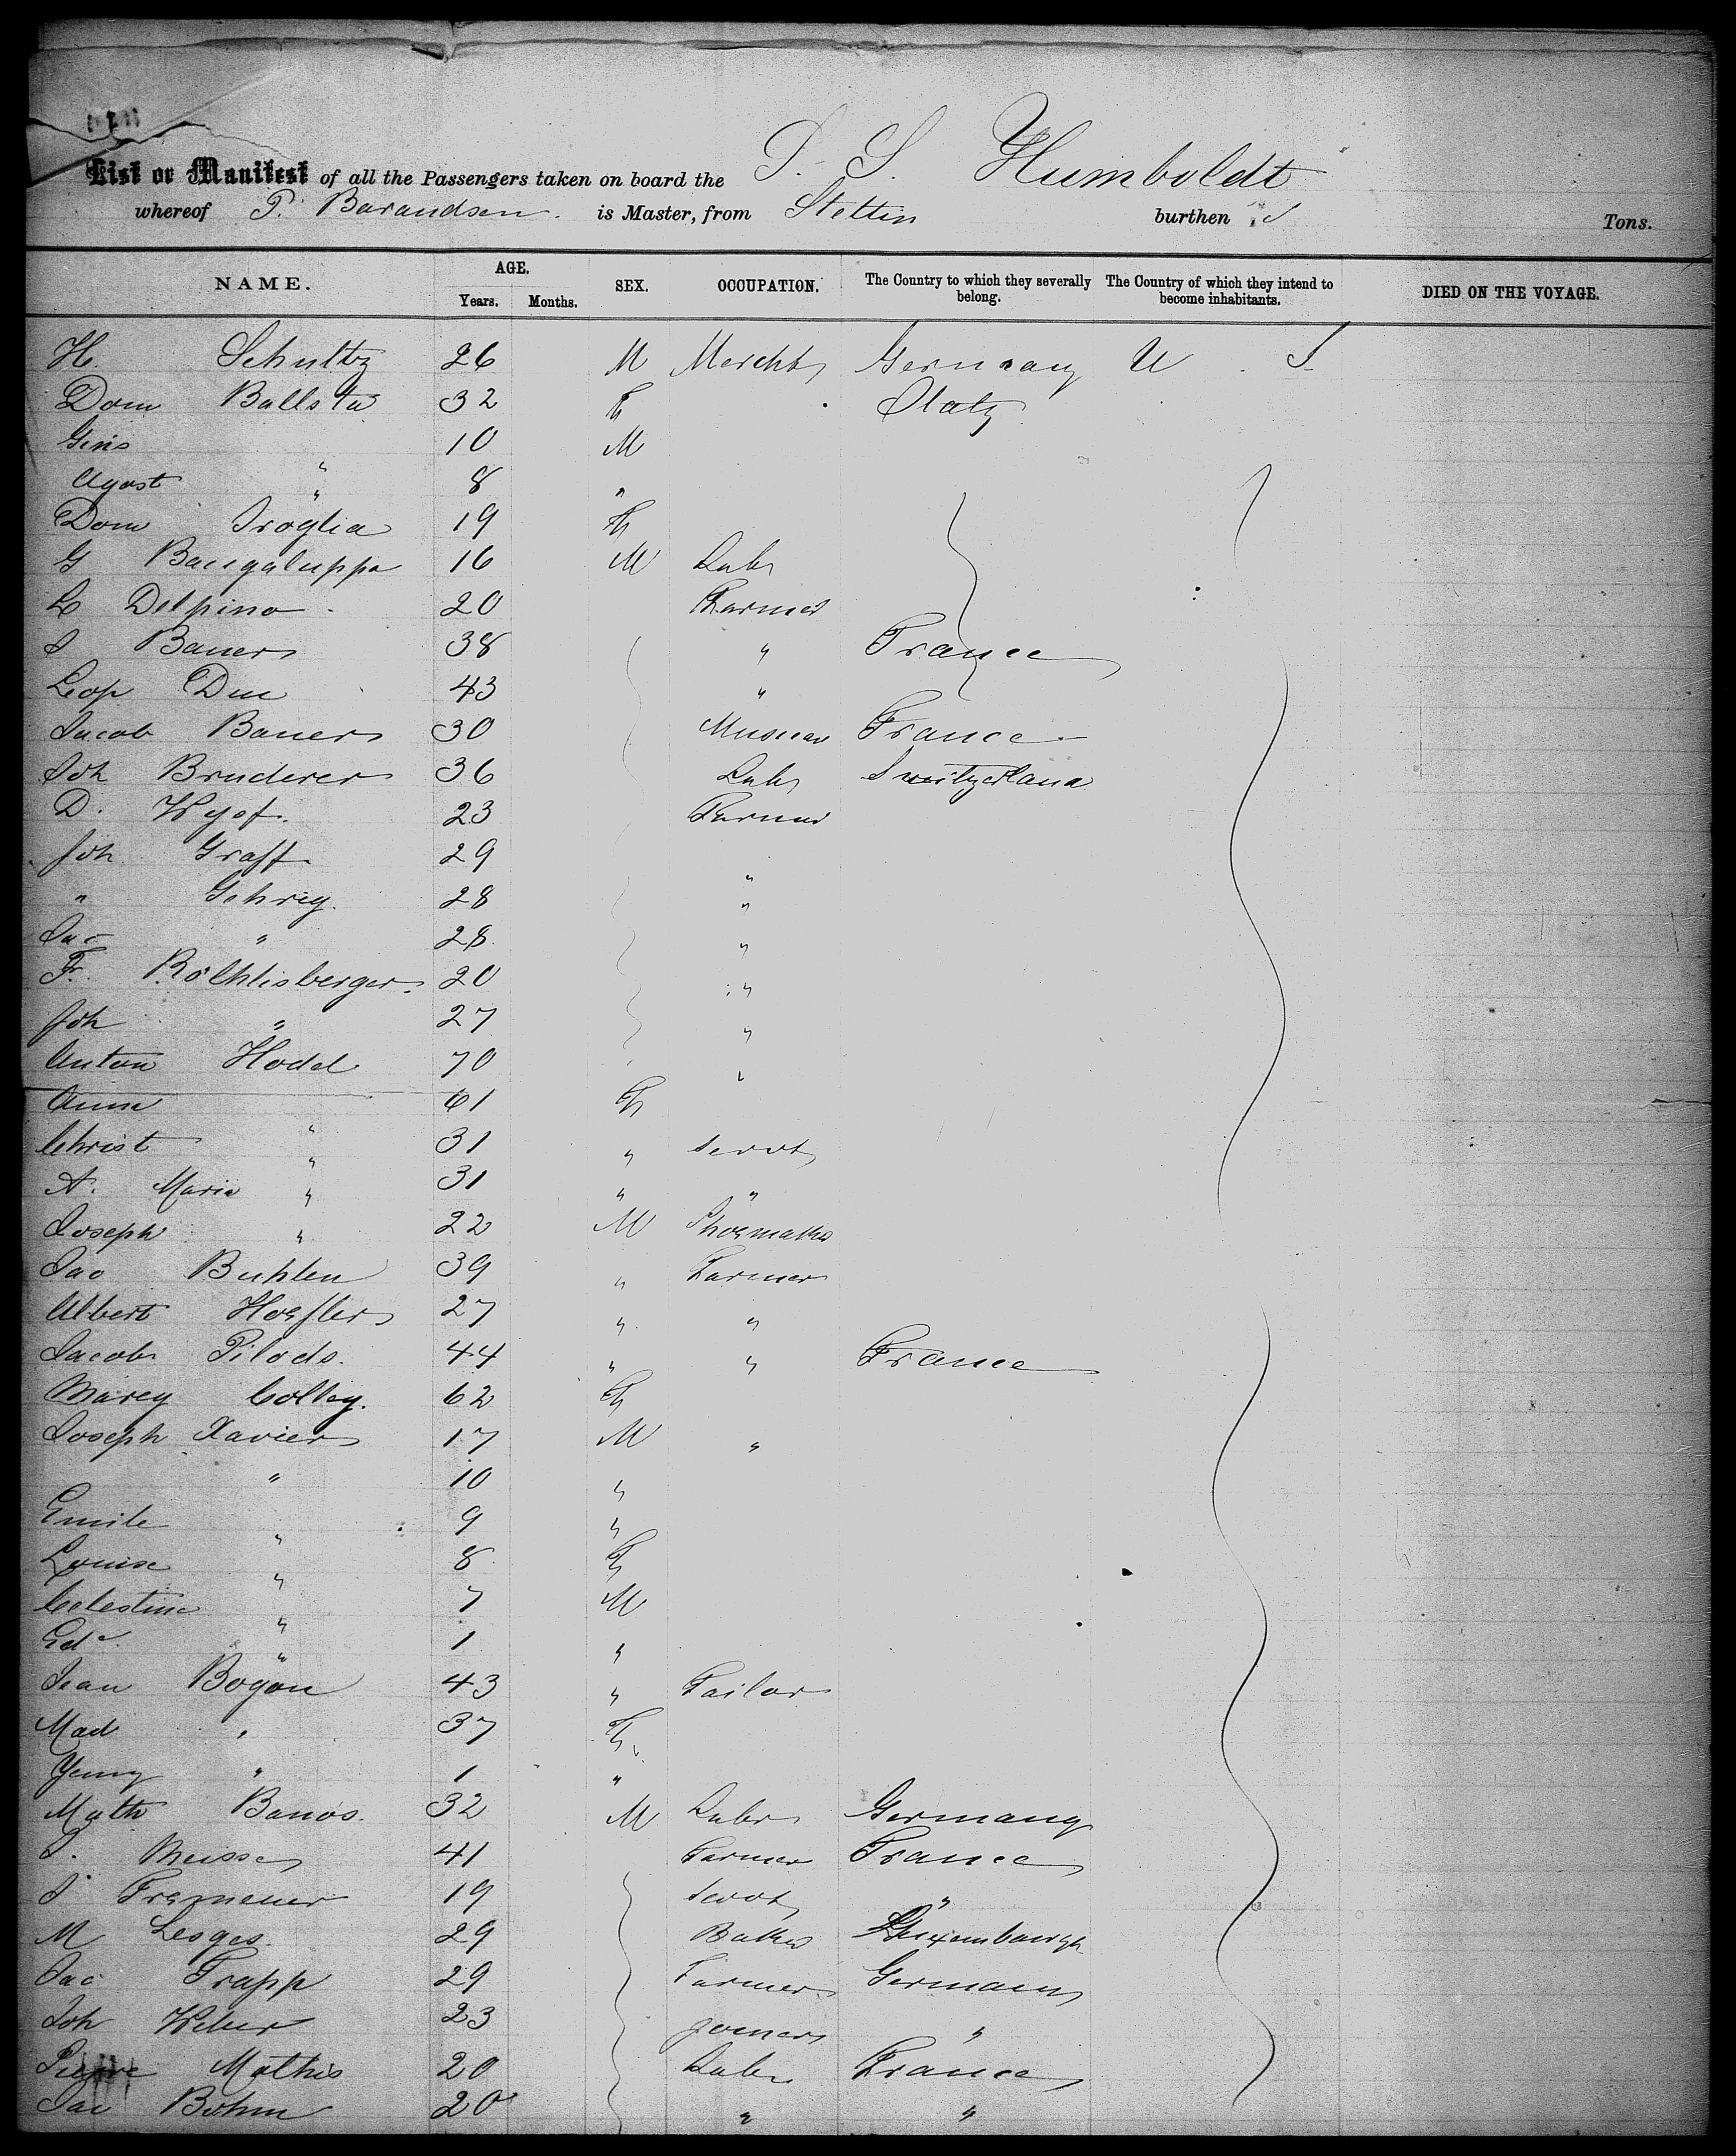 List or Manifest of all the Passengers taken on board the S. S. Humboldt
whereof P. Barandsen is Master, from Stettin burthen Tons.
NAME. AGE. Years. Months. SEX. OCCUPATION. The Country to which they severally belong. The Country of which they intend to become inhabitants. DIED ON THE VOYAGE.
H. Schultz 26 M Mercht Germany U S
Dom Ballsta 32 F Italy
10 M
Agost " 8 "
Dom Troglia 19 F
G Bangaluppa 16 M Labr
L Delpino 20 Farmer
J Bauer 38 " France
Leop Duc 43 "
Jacob Bauer 30 Musician France
Joh Bruderer 36 Labr Switzerland
D. Wyss 23 Farmer
Joh Graff 29 "
" Gehrig 28 "
Jac " 28 "
Fr. Röthlisberger 20 "
Joh " 27 "
Anton Hodel 70 "
Anna " 61 F
Christ " 31 " Servt
A. Maria " 31 " "
Joseph " 22 M Shoemaker
Jac Buhlen 39 " Farmer
Albert Hoefler 27 " "
Jacob Pilods 44 " " France
Marey Colley. 62 F
Joseph Xavier 17 M "
" 10 "
Emile " 9 "
Louise " 8 F
Celestine " 7 M
Edd " 1 "
Jean Bogon 43 " Tailor
Mad " 37 F
Yenny " 1 "
Math Banos. 32 M Labr Germany
Meisse 41 Farmer France
J Fremeuer 19 Servt "
M Lesges 29 Baker Luxembourgh
Jac Trapp 29 Farmer Germany
Joh Weber 23 Joiner "
Pierre Mathis 20 Labr France
Jac Bohm 20 " "